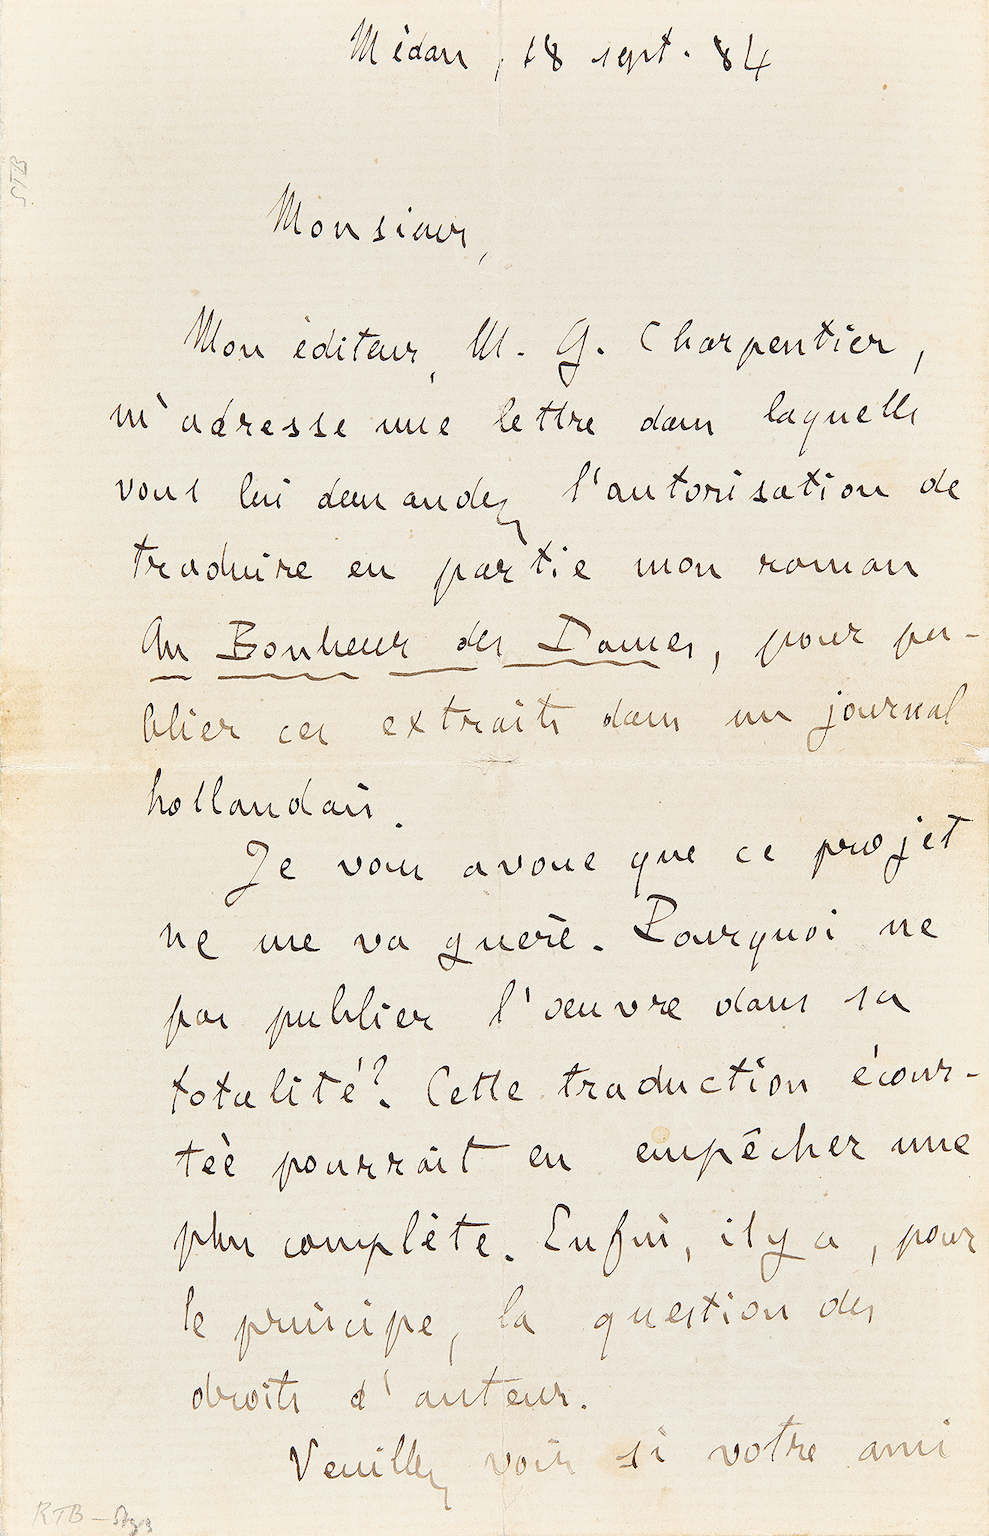 Médan, 18 sept. 84
Monsieur,
Mon éditeur, M. G. Charpentier,
m'adresse une lettre dans laquelle
vous lui demandez l'autorisation de
traduire en partie mon roman
Au Bonheur des Dames, pour pu-
blier ces extraits dans un journal
hollandais.
Je vous avoue que ce projet
ne me va guère. Pourquoi ne
pas publier l'œuvre dans sa
totalité? Cette traduction écour-
tée pourrait en empêcher une
plus complète. Enfin, il y a, pour
le principe, la question des
droits d'auteur.
Veuillez voir si votre ami
RTB –